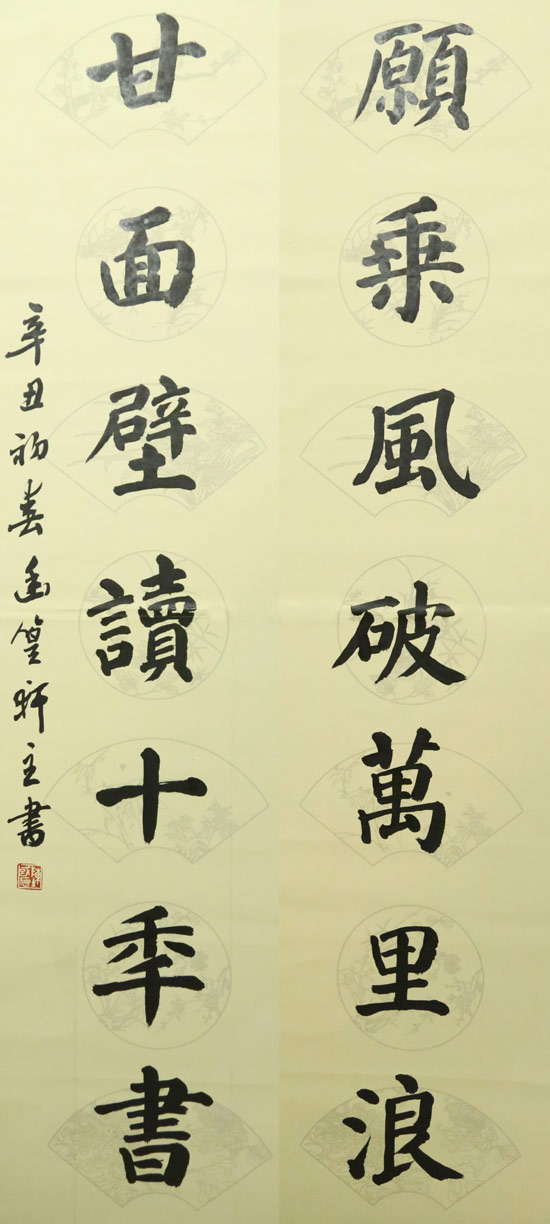 願乘風破萬里浪
甘面壁讀十秊書
辛丑初春幽篁軒主書